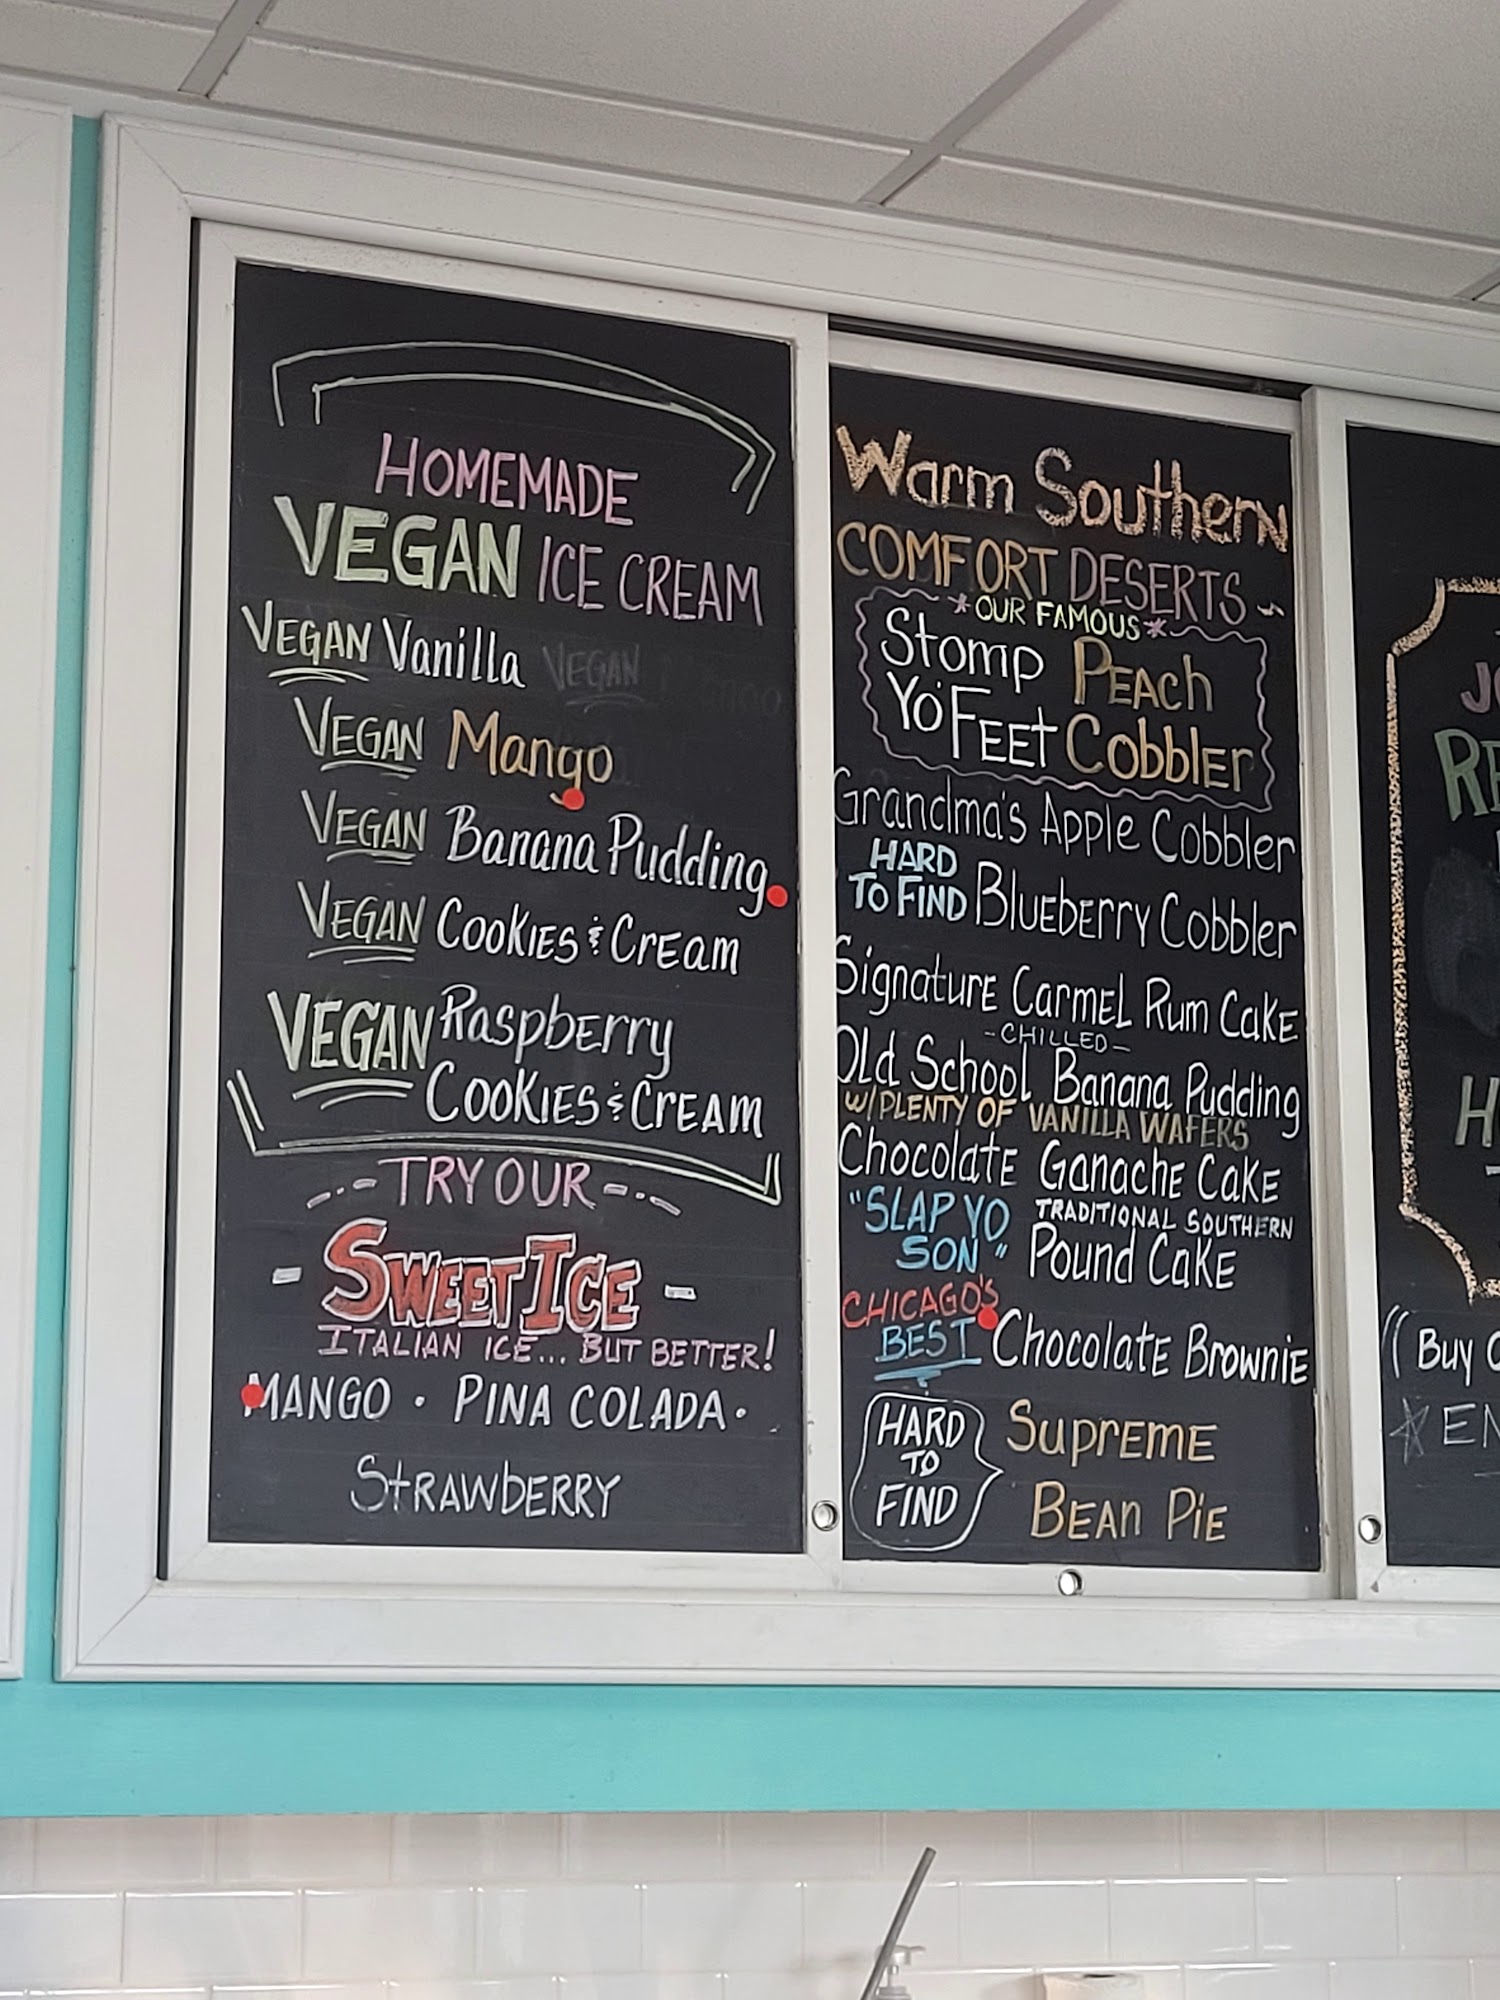 HOMEMADE
VEGAN ICE CREAM
VEGAN Vanilla VEGAN
VEGAN Mango
VEGAN Banana Pudding
VEGAN Cookies & Cream
VEGAN Raspberry
Cookies & Cream
TRY OUR
SWEET ICE
ITALIAN ICE... BUT BETTER!
MANGO · PINA COLADA ·
STRAWBERRY
Warm Southern
COMFORT DESERTS
*OUR FAMOUS*
Stomp PEACH
YO' FEET CobblER
Grandma's Apple Cobbler
HARD
TO FIND Blueberry Cobbler
Signature Carmel Rum Cake
-CHILLED-
Old School Banana Pudding
W/PLENTY OF VANILLA WAFERS
Chocolate Ganache Cake
"SLAP YO TRADITIONAL SOUTHERN
SON" Pound Cake
CHICAGO'S
BEST Chocolate Brownie
HARD
TO
FIND
Supreme
Bean Pie
Buy